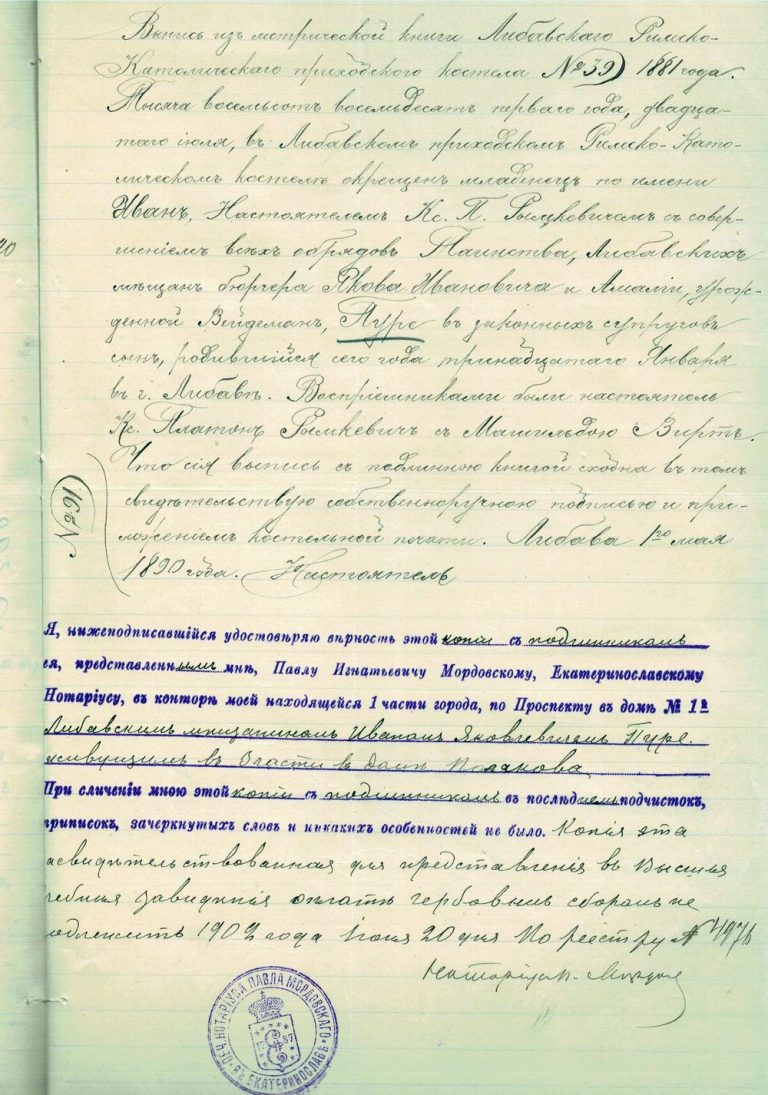 Выпись изъ метрической книги Либавскаго Римско-
Католическаго приходскаго костела № 39) 1881 года.
Тысяча восемьсотъ восемьдесятъ перваго года, двадца-
таго іюля, въ Либавскомъ приходскомъ Римско-Като-
лическомъ костелѣ окрещенъ младенецъ по имени
Иванъ, Настоятелемъ Кс. П. Рымкевичемъ съ совер-
шеніемъ всѣхъ обрядовъ Таинства, Либавскихъ
мѣщанъ бюргера Якова Ивановича и Амаліи, урож-
денной Вейдеманъ, Пуре въ законныхъ супруговъ
сынъ, родившійся сего года тринадцатаго Января
въ г. Либавѣ. Воспріемниками были настоятель
Кс. Платонъ Рымкевичъ съ Матильдою Виртъ.
Что сія выпись съ подлинною книгой сходна въ томъ
свидѣтельствую собственноручною подписью и при-
ложеніемъ костельной печати. Либава 1го мая
1890 года. Настоятель
№ 291
20
Я, нижеподписавшійся удостовѣряю вѣрность этой копіи съ подлинникомъ
ея, представленнымъ мнѣ, Павлу Игнатьевичу Мордовскому, Екатеринославскому
Нотаріусу, въ конторѣ моей находящейся 1 части города, по Проспекту въ домѣ № 1й
Либавскимъ мѣщаниномъ Иваномъ Яковлевичемъ Пуре,
живущимъ въ части въ домѣ Полякова
При сличеніи мною этой копіи съ подлинникомъ въ послѣднемъ подчистокъ,
приписокъ, зачеркнутыхъ словъ и никакихъ особенностей не было. Копія эта
асвидѣтельствованная для представленія въ Высшія
чебныя заведенія оплатѣ гербовымъ сборомъ не
одлежитъ 1902 года Іюня 20 дня По реестру №
Нотаріусъ
ПЕЧ. НОТАРІУСА ПАВЛА МОРДОВСКАГО
ВЪ ЕКАТЕРИНОСЛАВѢ
87